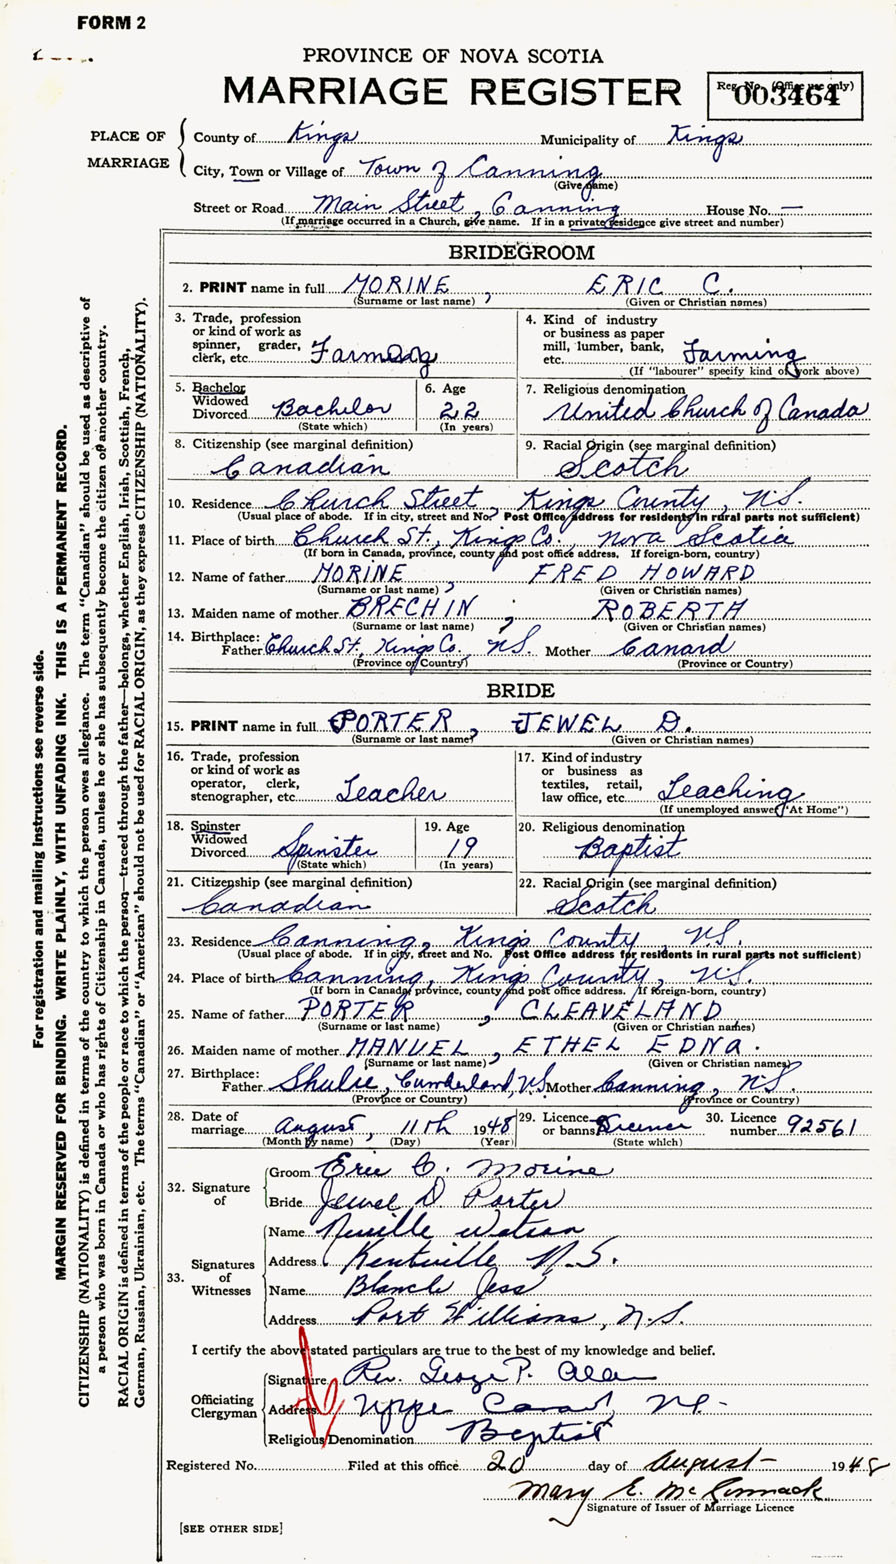 FORM 2
PROVINCE OF NOVA SCOTIA
MARRIAGE REGISTER
Reg. No. (Office use only)
003464
PLACE OF MARRIAGE
County of Kings Municipality of Kings
City, Town or Village of Town of Canning
(Give name)
Street or Road Main Street, Canning House No. —
(If marriage occurred in a Church, give name. If in a private residence give street and number)
BRIDEGROOM
2. PRINT name in full MORINE, ERIC C.
(Surname or last name) (Given or Christian names)
3. Trade, profession or kind of work as spinner, grader, clerk, etc.
4. Kind of industry or business as paper mill, lumber, bank, etc. Farming
(If "labourer" specify kind of work above)
5. Bachelor Widowed Divorced Bachelor
(State which)
6. Age 22
(In years)
7. Religious denomination United Church of Canada
8. Citizenship (see marginal definition) Canadian
9. Racial Origin (see marginal definition) Scotch
10. Residence Church Street, Kings County, N.S.
(Usual place of abode. If in city, street and No. Post Office address for residents in rural parts not sufficient)
11. Place of birth Church St., Kings Co., Nova Scotia
(If born in Canada, province, county and post office address. If foreign-born, country)
12. Name of father MORINE, FRED HOWARD
(Surname or last name) (Given or Christian names)
13. Maiden name of mother BRECHIN, ROBERTA
(Surname or last name) (Given or Christian names)
14. Birthplace: Father Church St., Kings Co., N.S. Mother Canard
(Province or Country) (Province or Country)
BRIDE
15. PRINT name in full PORTER, JEWEL D.
(Surname or last name) (Given or Christian names)
16. Trade, profession or kind of work as operator, clerk, stenographer, etc. Teacher
17. Kind of industry or business as textiles, retail, law office, etc. Teaching
(If unemployed answer "At Home")
18. Spinster Widowed Divorced Spinster
(State which)
19. Age 19
(In years)
20. Religious denomination Baptist
21. Citizenship (see marginal definition) Canadian
22. Racial Origin (see marginal definition) Scotch
23. Residence Canning, Kings County, N.S.
(Usual place of abode. If in city, street and No. Post Office address for residents in rural parts not sufficient)
24. Place of birth Canning, Kings County, N.S.
(If born in Canada, province, county and post office address. If foreign-born, country)
25. Name of father PORTER, CLEAVELAND
(Surname or last name) (Given or Christian names)
26. Maiden name of mother MANUEL, ETHEL EDNA.
(Surname or last name) (Given or Christian names)
27. Birthplace: Father Shulie, Cumberland, N.S. Mother Canning, N.S.
(Province or Country) (Province or Country)
28. Date of marriage August, 11th 1948
(Month by name) (Day) (Year)
29. Licence or banns
(State which)
30. Licence number 92561
32. Signature of
Groom Eric C. Morine
Bride Jewel D. Porter
33. Signatures of Witnesses
Name Neville Watson
Address Kentville N.S.
Name Blanche Jess
Address Port Williams, N.S.
I certify the above stated particulars are true to the best of my knowledge and belief.
Officiating Clergyman
Signature Rev. George P. Allen
Address Upper Canard, N.S.
Religious Denomination Baptist
Registered No. Filed at this office 20 day of August 1948
Mary E. McCormack
Signature of Issuer of Marriage Licence
[SEE OTHER SIDE]
For registration and mailing instructions see reverse side.
MARGIN RESERVED FOR BINDING. WRITE PLAINLY, WITH UNFADING INK. THIS IS A PERMANENT RECORD.
CITIZENSHIP (NATIONALITY) is defined in terms of the country to which the person owes allegiance. The term "Canadian" should be used as descriptive of
a person who was born in Canada or who has rights of Citizenship in Canada, unless he or she has subsequently become the citizen of another country.
RACIAL ORIGIN is defined in terms of the people or race to which the person—traced through the father—belongs, whether English, Irish, Scottish, French,
German, Russian, Ukrainian, etc. The terms "Canadian" or "American" should not be used for RACIAL ORIGIN, as they express CITIZENSHIP (NATIONALITY).